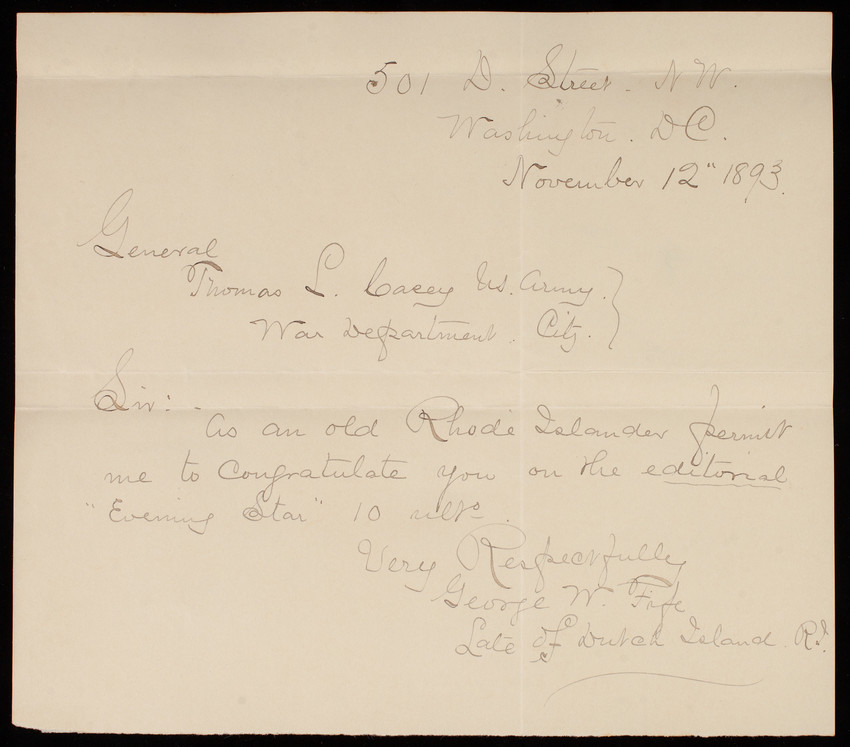 501 D. Street. N W.
Washington. D C.
November 12" 1893.
General
Thomas L. Casey U.S. Army.
War Department. City.
Sir:-
As an old Rhode Islander permit
me to congratulate you on the editorial
"Evening Star" 10 ulto.
Very Respectfully
George W. Fife
Late of Dutch Island R.I.